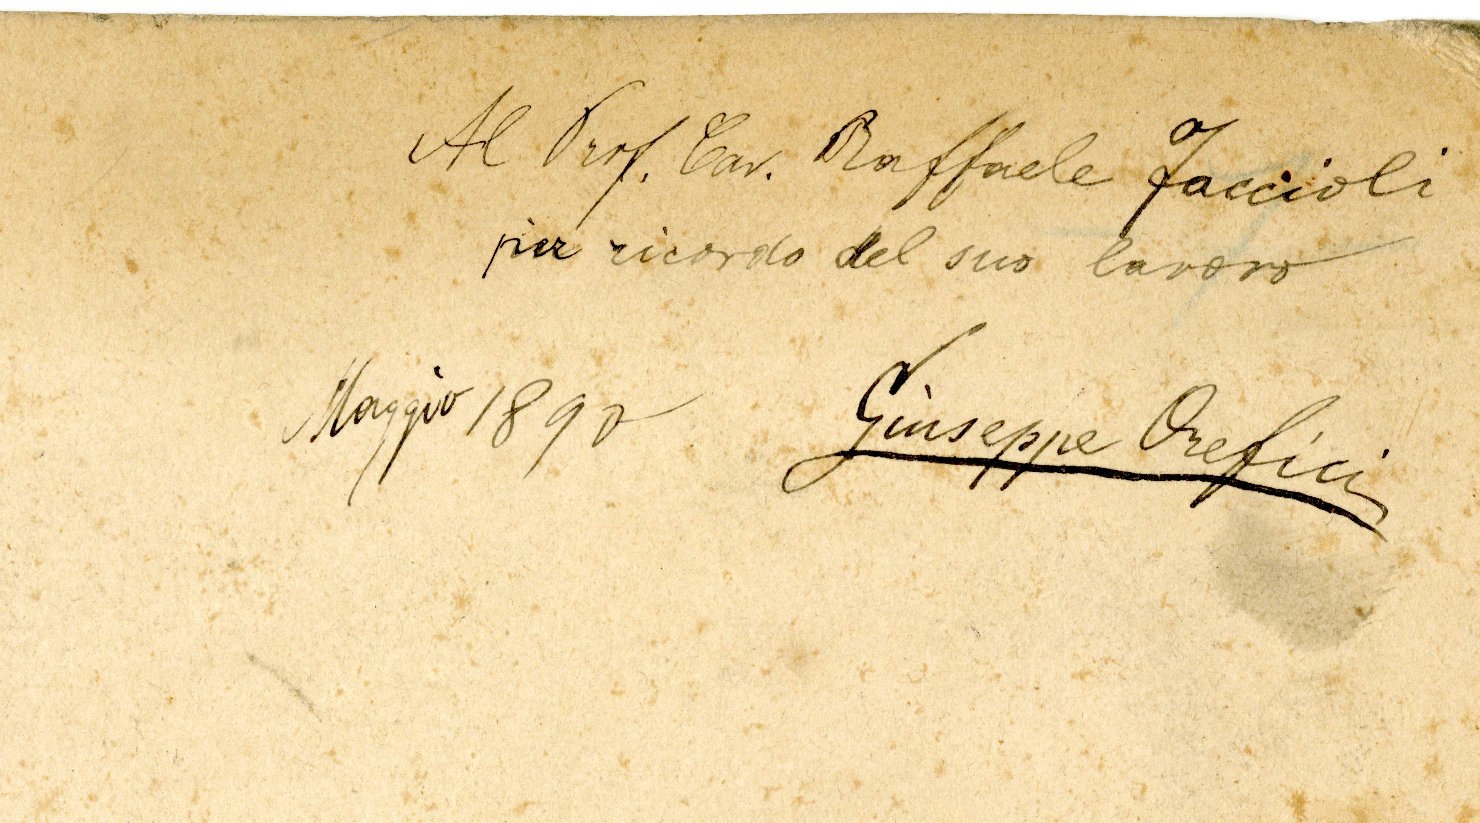 Al Prof. Cav. Raffaele Faccioli
per ricordo del suo lavoro
Maggio 1890 Giuseppe Orefici